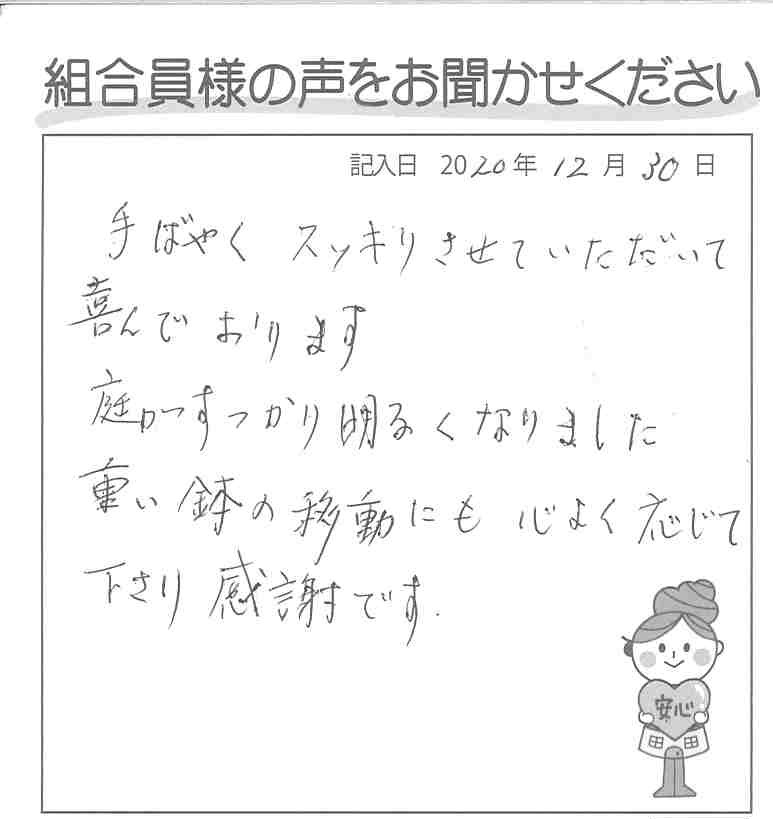 組合員様の声をお聞かせください
記入日 2020年 12月 30日
手ばやく スッキリさせていただいて
喜んで おります
庭がすっかり明るくなりました
重い鉢の移動にも 心よく応じて
下さり 感謝です.
安心